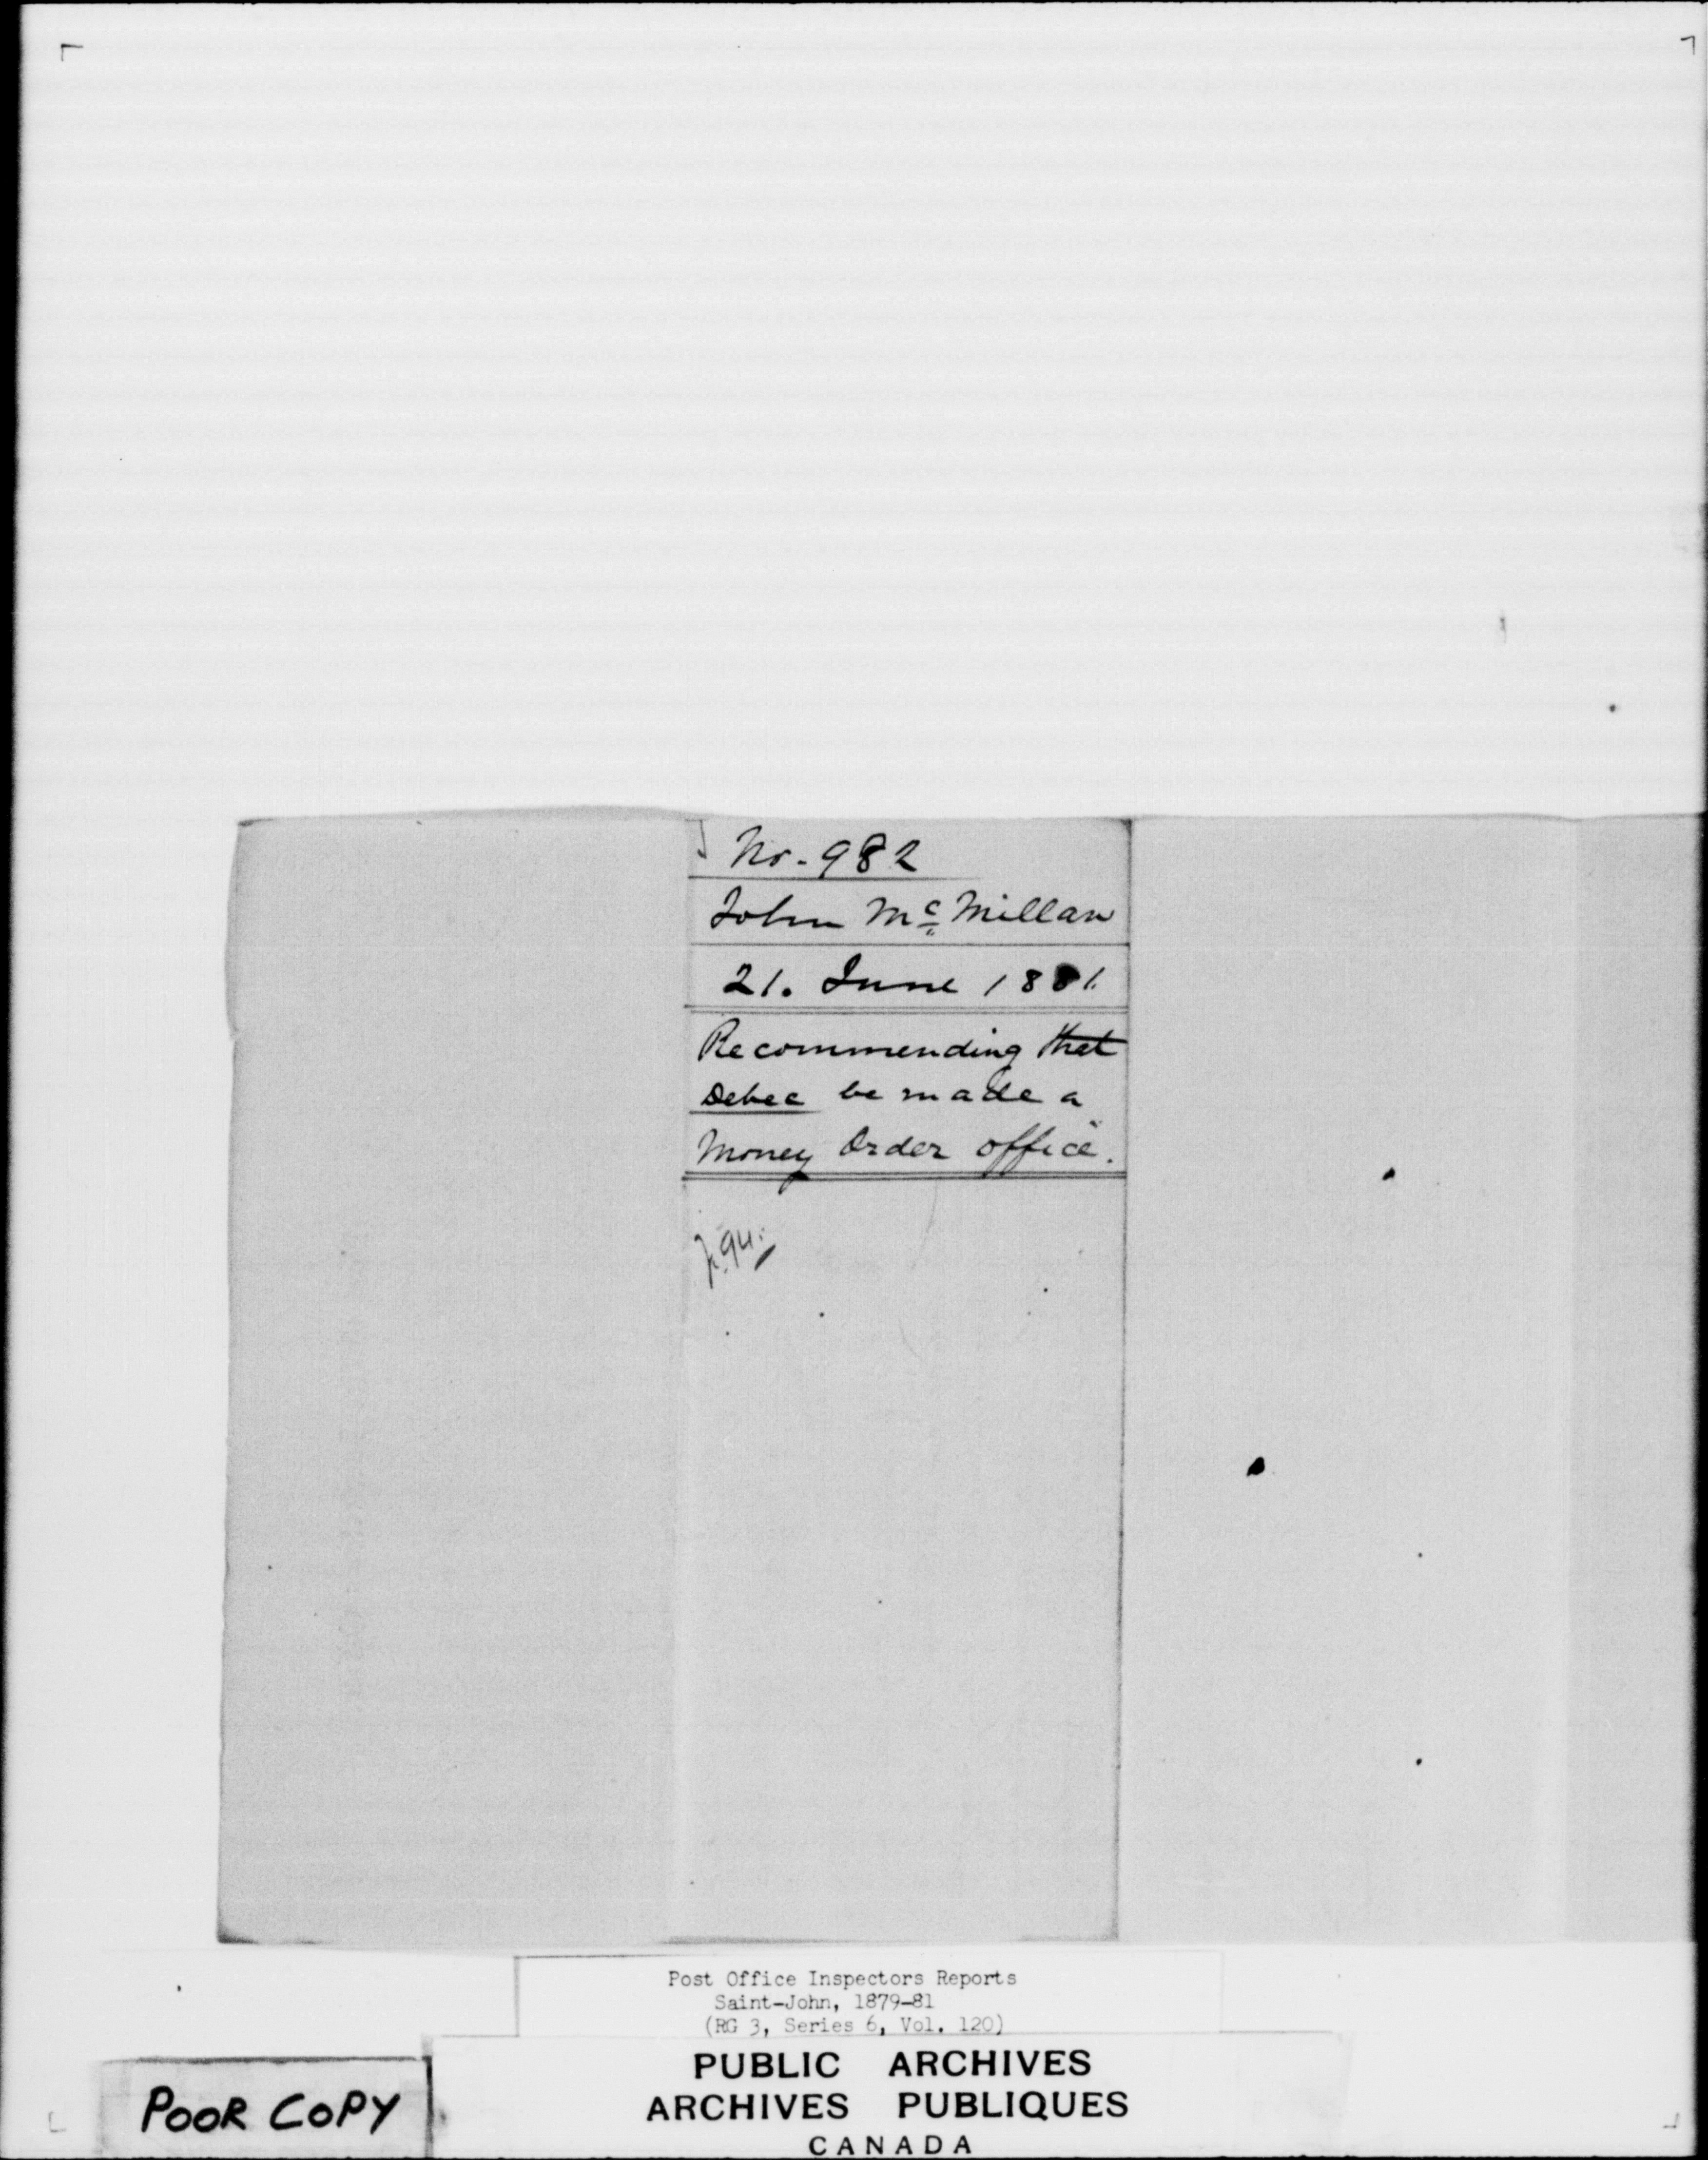 No. 982
John Mc Millan
21. June 1881.
Recommending that
Debec be made a
Money Order office.
Post Office Inspectors Reports
Saint-John, 1879-81
(RG 3, Series 6, Vol. 120)
PUBLIC ARCHIVES
ARCHIVES PUBLIQUES
CANADA
POOR COPY